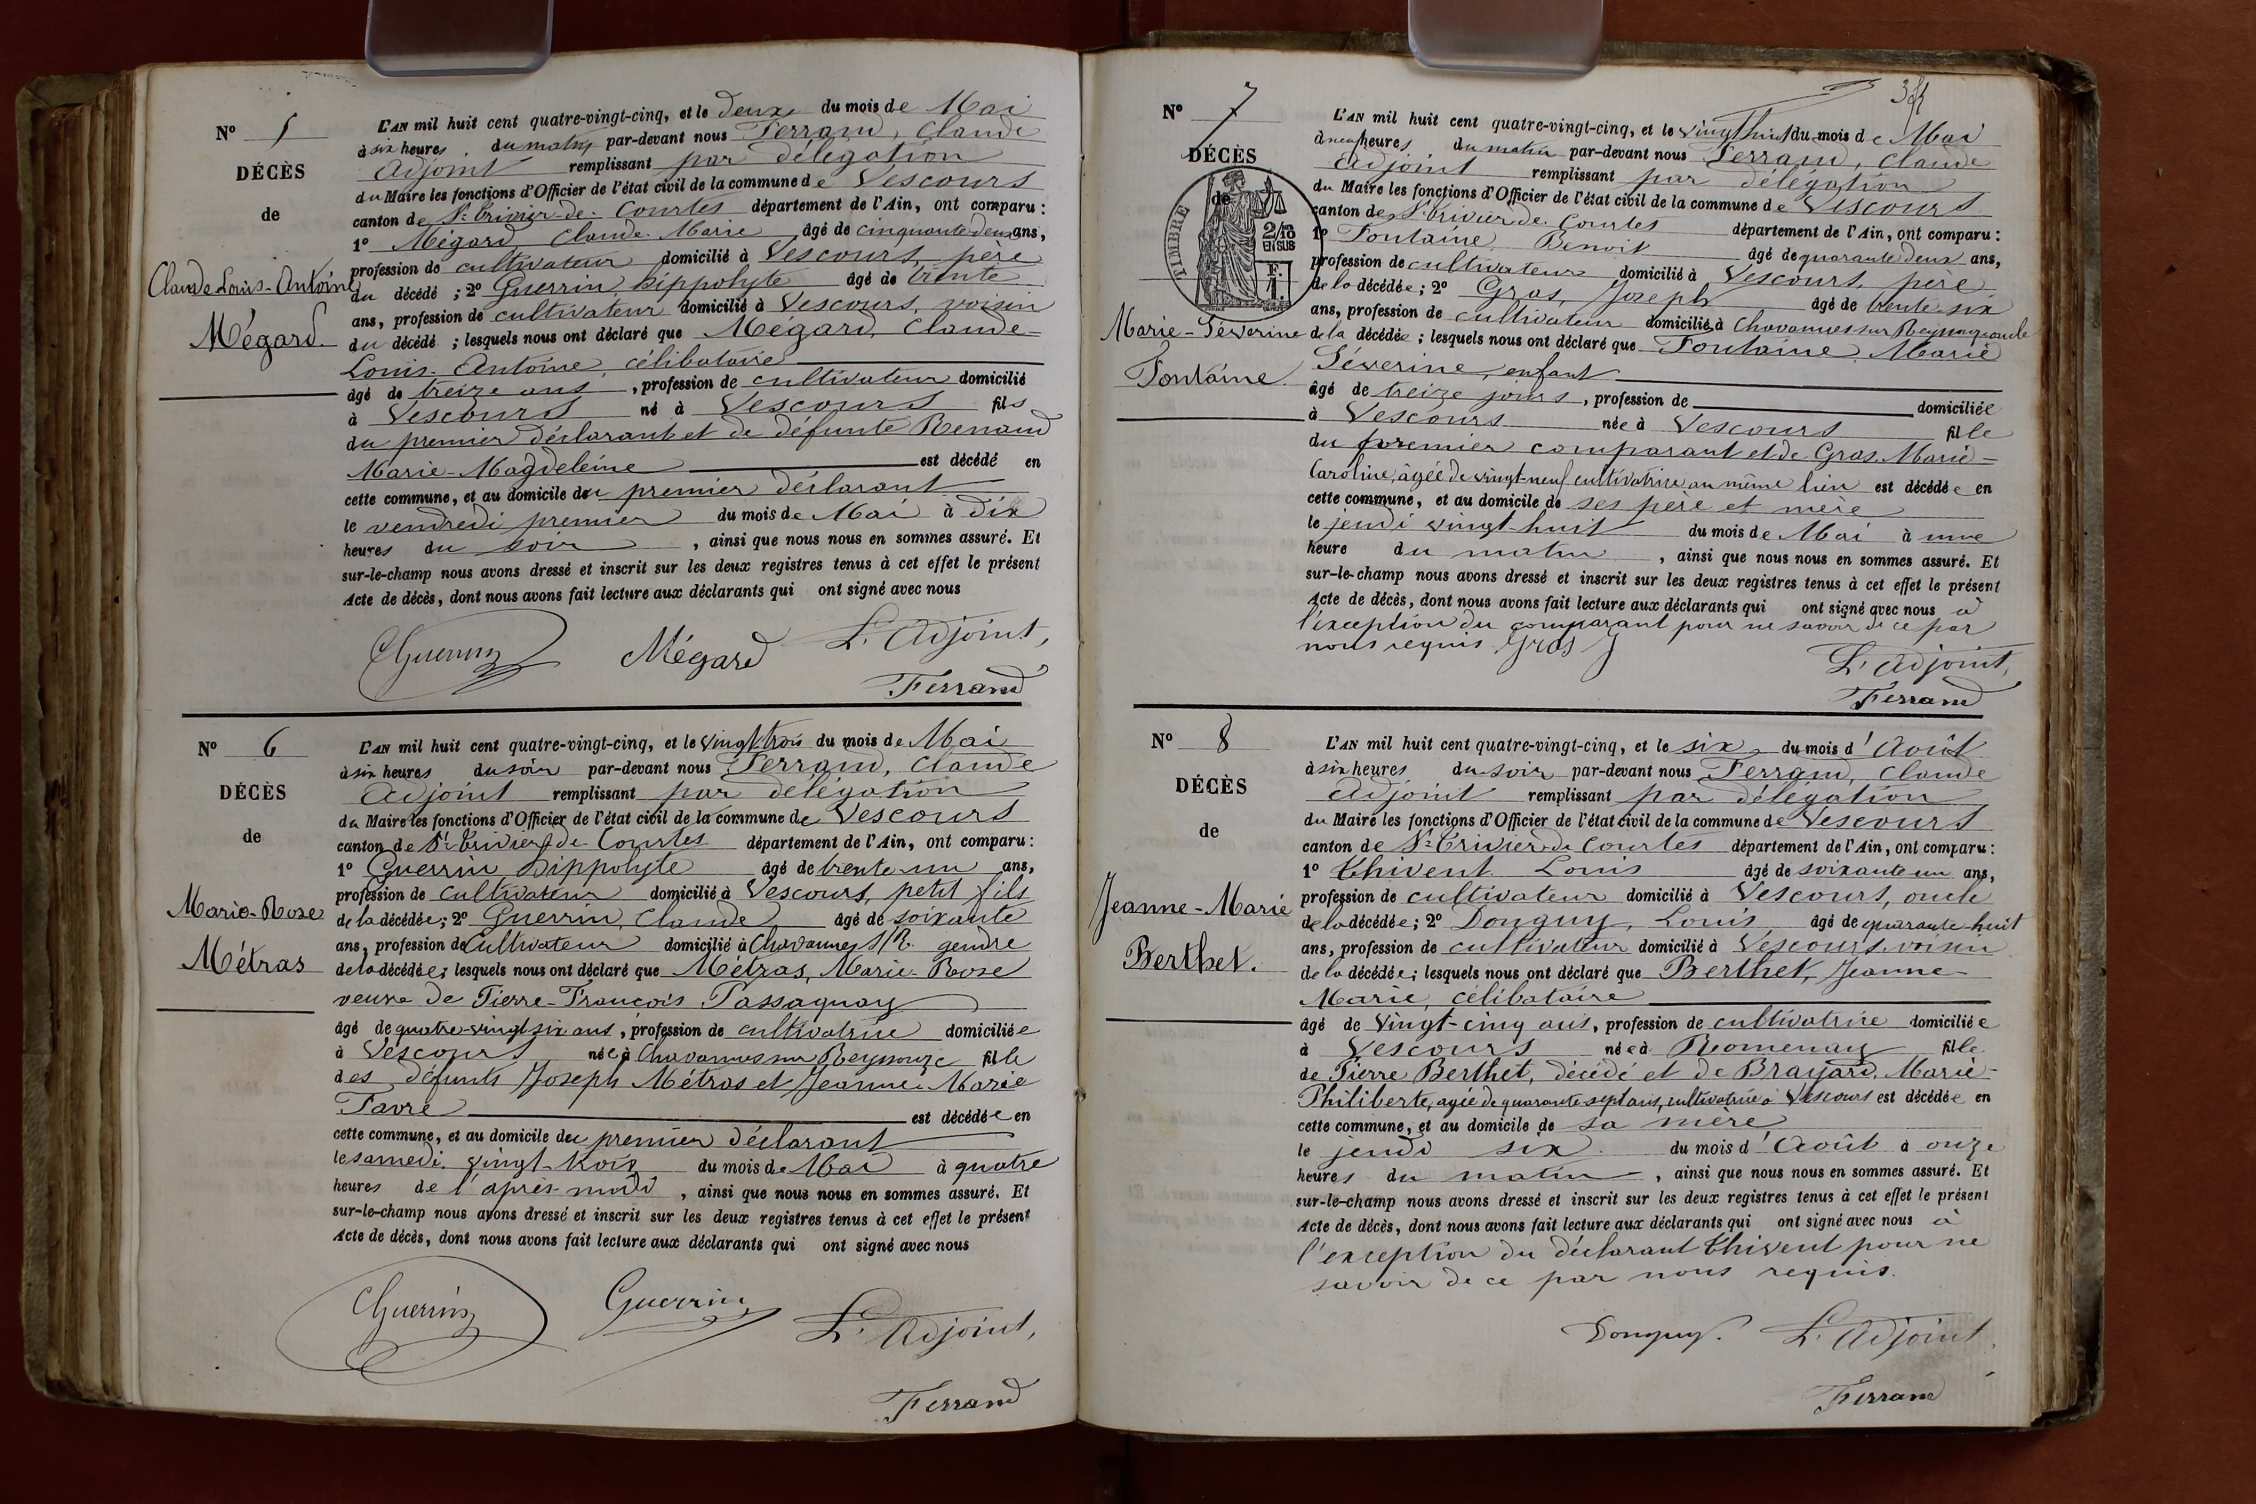 Nº 5
DÉCÈS
de
Claude Louis-Antoine
Mégard.
L'AN mil huit cent quatre-vingt-cinq, et le deux du mois de Mai
à six heures du matin par-devant nous Ferrand, Claude
Adjoint remplissant par délégation
du Maire les fonctions d'Officier de l'état civil de la commune de Vescours
canton de St Trivier-de-Courtes département de l'Ain, ont comparu :
1º Mégard, Claude Marie âgé de cinquante deux ans,
profession de cultivateur domicilié à Vescours, père
du décédé ; 2º Guerrin Hippolyte âgé de trente
ans, profession de cultivateur domicilié à Vescours, voisin
du décédé ; lesquels nous ont déclaré que Mégard, Claude-
Louis-Antoine, célibataire
âgé de treize ans , profession de cultivateur domicilié
à Vescours né à Vescours fils
du premier déclarant et de défunte Renaud
Marie-Magdeleine est décédé en
cette commune, et au domicile du premier déclarant
le vendredi premier du mois de Mai à dix
heures du soir , ainsi que nous nous en sommes assuré. Et
sur-le-champ nous avons dressé et inscrit sur les deux registres tenus à cet effet le présent
Acte de décès, dont nous avons fait lecture aux déclarants qui ont signé avec nous
Guerrin Mégard L'Adjoint,
Ferrand
Nº 6
DÉCÈS
de
Marie-Rose
Métras
L'AN mil huit cent quatre-vingt-cinq, et le vingt-trois du mois de Mai
à six heures du soir par-devant nous Ferrand, Claude
Adjoint remplissant par délégation
du Maire les fonctions d'Officier de l'état civil de la commune de Vescours
canton de St Trivier-de-Courtes département de l'Ain, ont comparu :
1º Guerrin Hippolyte âgé de trente un ans,
profession de cultivateur domicilié à Vescours, petit fils
de la décédée ; 2º Guerrin, Claude âgé de soixante
ans, profession de Cultivateur domicilié à Chavannes S/R. gendre
de la décédée ; lesquels nous ont déclaré que Métras, Marie-Rose
veuve de Pierre-François Passaquay
âgé de quatre-vingt six ans , profession de cultivatrice domiciliée
à Vescours née à Chavannes sur Reyssouze fille
des défunts Joseph Métras et Jeanne-Marie
Favre est décédée en
cette commune, et au domicile du premier déclarant
le samedi vingt-trois du mois de Mai à quatre
heures de l'après-midi , ainsi que nous nous en sommes assuré. Et
sur-le-champ nous avons dressé et inscrit sur les deux registres tenus à cet effet le présent
Acte de décès, dont nous avons fait lecture aux déclarants qui ont signé avec nous
Guerrin Guerrin L'Adjoint,
Ferrand
Nº 7
DÉCÈS
de
TIMBRE
2/10
EN SUS
Marie-Séverine
Fontaine
L'AN mil huit cent quatre-vingt-cinq, et le vingt huit du mois de Mai
à neuf heures du matin par-devant nous Ferrand, Claude
Adjoint remplissant par délégation
du Maire les fonctions d'Officier de l'état civil de la commune de Vescours
canton de St Trivier-de-Courtes département de l'Ain, ont comparu :
1º Fontaine Benoit âgé de quarante deux ans,
profession de cultivateur domicilié à Vescours, père
de la décédée ; 2º Gras, Joseph âgé de trente-six
ans, profession de cultivateur domicilié à Chavannes sur Reyssouze oncle
de la décédée ; lesquels nous ont déclaré que Fontaine Marie
Séverine, enfant
âgé de treize jours , profession de domiciliée
à Vescours née à Vescours fille
du premier comparant et de Gras Marie-
Caroline, âgée de vingt-neuf cultivatrice au même lieu est décédée en
cette commune, et au domicile de ses père et mère
le jeudi vingt-huit du mois de Mai à une
heure du matin , ainsi que nous nous en sommes assuré. Et
sur-le-champ nous avons dressé et inscrit sur les deux registres tenus à cet effet le présent
Acte de décès, dont nous avons fait lecture aux déclarants qui ont signé avec nous à
l'exception du comparant pour ne savoir de ce par
nous requis Gras J L'Adjoint,
Ferrand
Nº 8
DÉCÈS
de
Jeanne-Marie
Berthet.
L'AN mil huit cent quatre-vingt-cinq, et le six du mois d'Août
à six heures du soir par-devant nous Ferrand, Claude
Adjoint remplissant par délégation
du Maire les fonctions d'Officier de l'état civil de la commune de Vescours
canton de St Trivier-de-Courtes département de l'Ain, ont comparu :
1º Thivent Louis âgé de soixante un ans,
profession de cultivateur domicilié à Vescours, oncle
de la décédée ; 2º Donguy, Louis âgé de quarante-huit
ans, profession de cultivateur domicilié à Vescours voisin
de la décédée ; lesquels nous ont déclaré que Berthet, Jeanne-
Marie, célibataire
âgé de vingt-cinq ans , profession de cultivatrice domiciliée
à Vescours née à Romenay fille
de Pierre Berthet, décédé et de Brayard, Marie-
Philiberte, agée de quarante-sept ans, cultivatrice à Vescours est décédée en
cette commune, et au domicile de sa mère
le jeudi six du mois d'Août à onze
heures du matin , ainsi que nous nous en sommes assuré. Et
sur-le-champ nous avons dressé et inscrit sur les deux registres tenus à cet effet le présent
Acte de décès, dont nous avons fait lecture aux déclarants qui ont signé avec nous à
l'exception du déclarant Thivent pour ne
savoir de ce par nous requis.
Donguy. L'Adjoint,
Ferrand